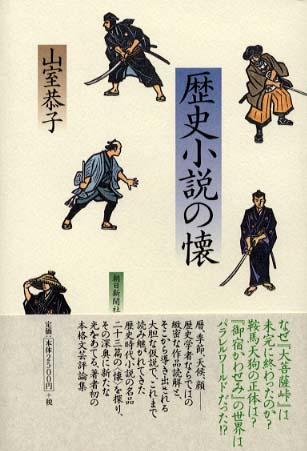 歴史小説の懐
山室恭子
朝日新聞社
なぜ『大菩薩峠』は
未完に終わったのか?
鞍馬天狗の正体は?
『御宿かわせみ』の世界は
パラレルワールドだった!!
暦、季節、天候、顔──
歴史学者ならではの
緻密な作品読解と、
そこから導き出される
大胆な仮説で、これまで
読み継がれてきた
歴史時代小説の名品
二十三篇の「懐」を探り、
その深奥に新たな
光をあてる、著者初の
本格文芸評論集
定価:本体2500円+税